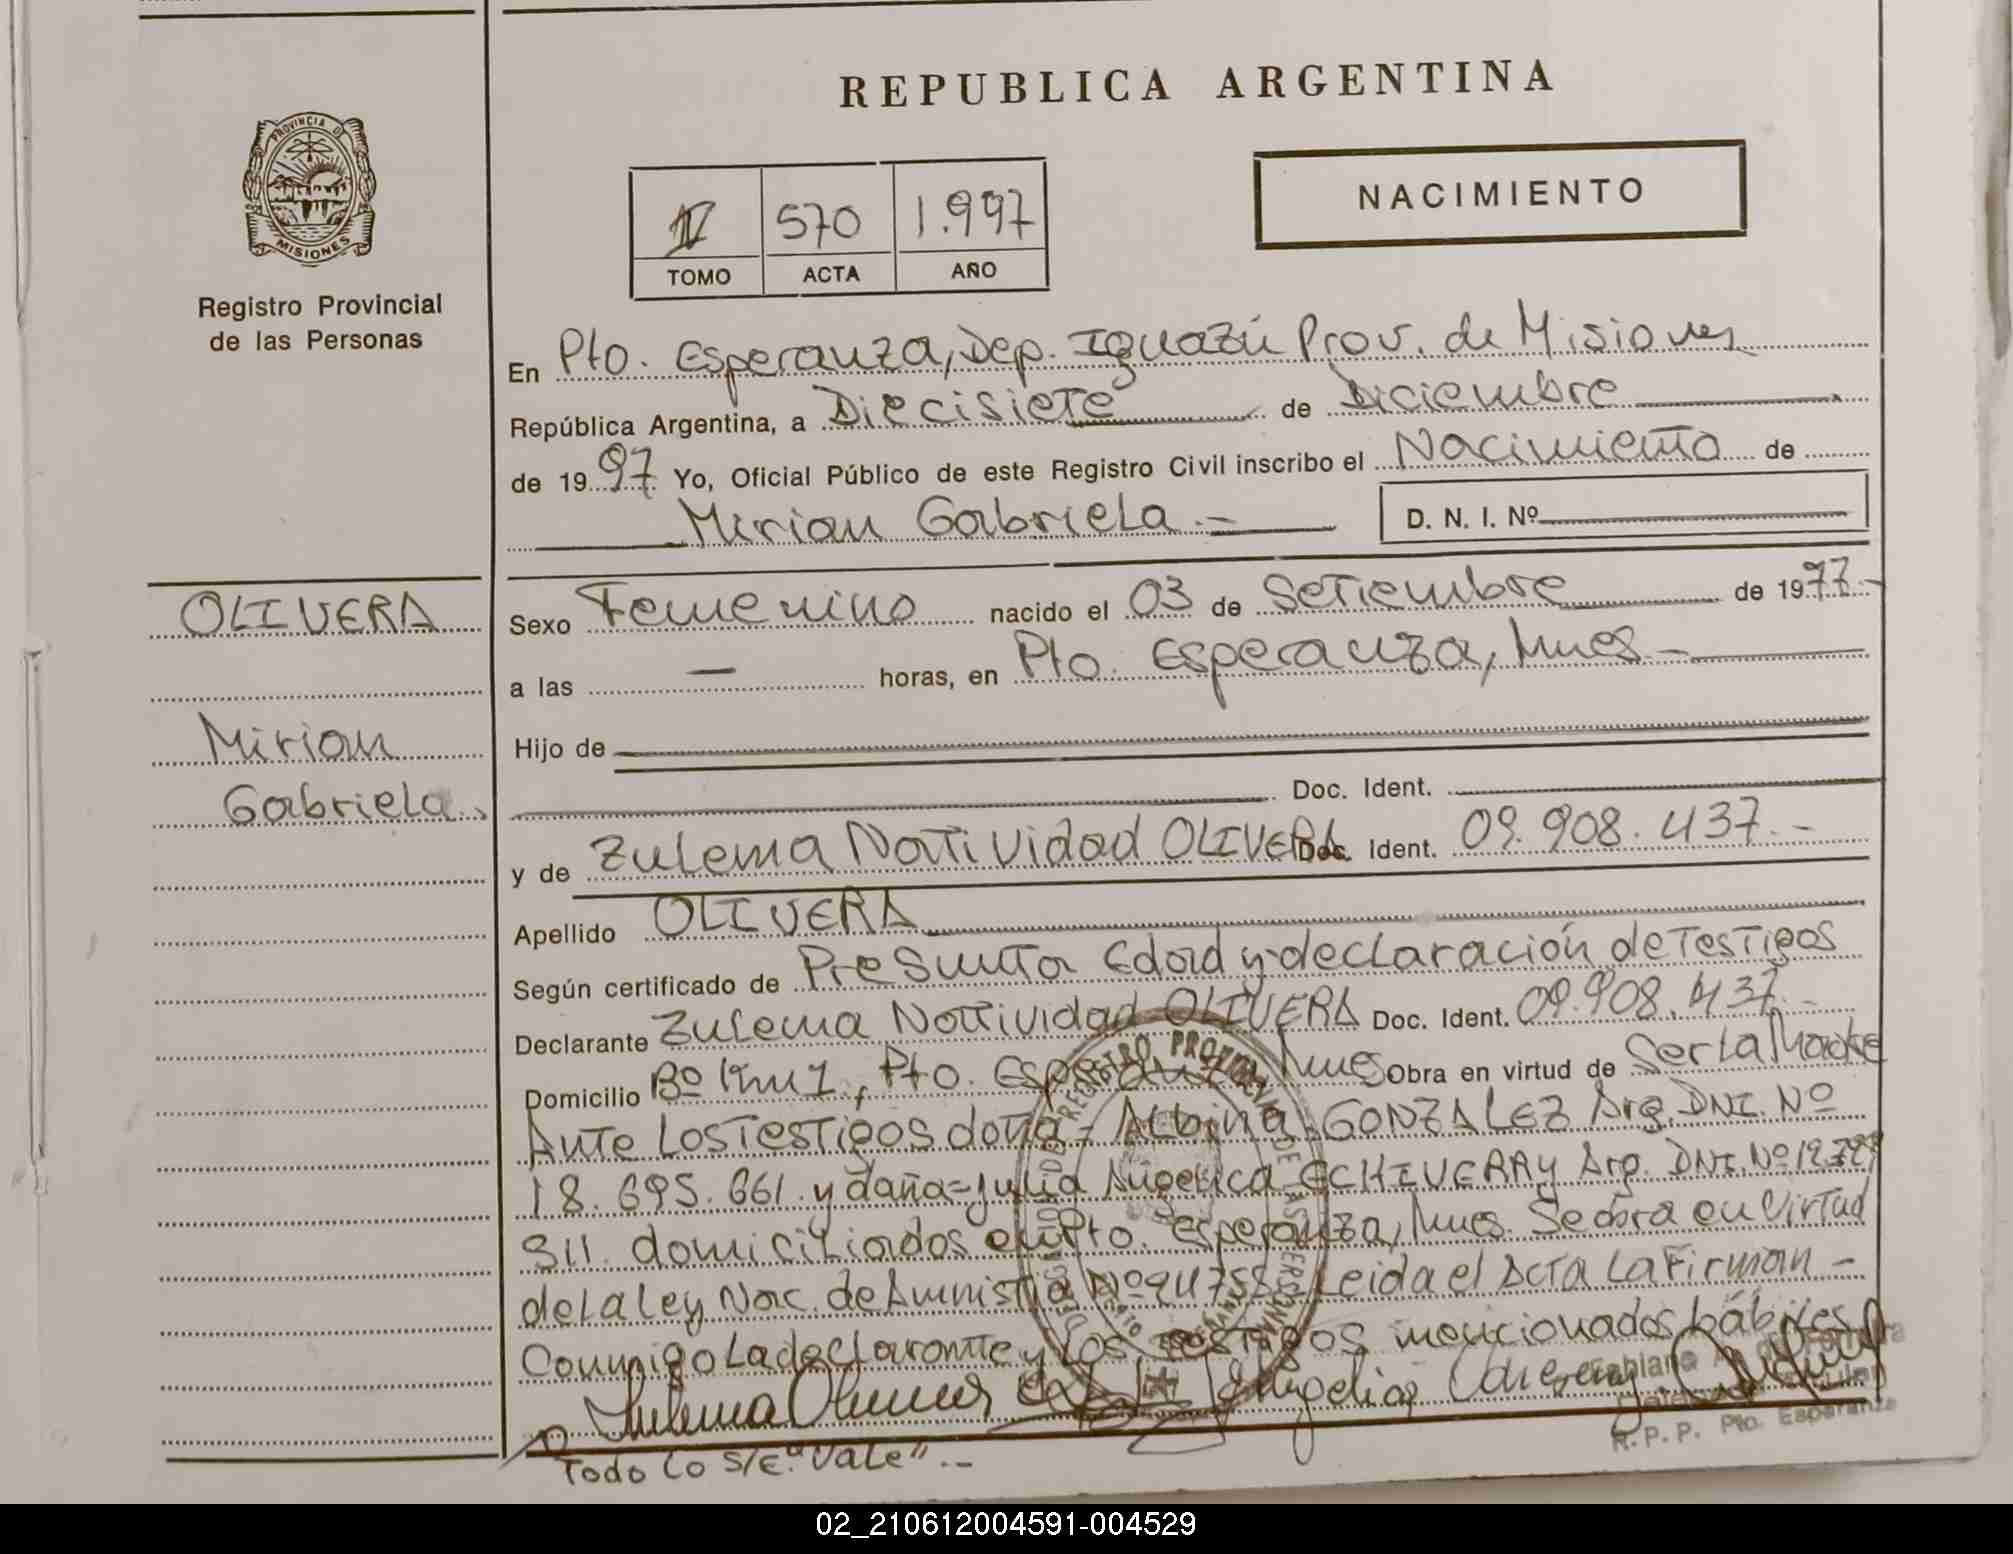 REPUBLICA ARGENTINA
PROVINCIA DE
MISIONES
Registro Provincial
de las Personas
IV 570 1.997
TOMO ACTA AÑO
NACIMIENTO
En Pto. Esperanza, Dep. Iguazú Prov. de Misiones
República Argentina, a Diecisiete de Diciembre
de 1997 Yo, Oficial Público de este Registro Civil inscribo el Nacimiento de
Mirian Gabriela.- D. N. I. Nº
OLIVERA
Mirian
Gabriela.
Sexo Femenino nacido el 03 de Setiembre de 1977.-
a las — horas, en Pto. Esperanza, Mnes.-
Hijo de
Doc. Ident.
y de Zulema Natividad OLIVERA Doc. Ident. 09.908.437.-
Apellido OLIVERA
Según certificado de Presunta Edad y declaración de Testigos
Declarante Zulema Natividad OLIVERA Doc. Ident. 09.908.437.-
Domicilio Bº Km 1, Pto. Esperanza, Mnes Obra en virtud de Ser la Madre
Ante Los Testigos doña- Albina GONZALEZ Arg. DNI. Nº
18.695.661. y doña= Julia Angelica ECHIVERRY Arg. DNI. Nº 12.
311. domiciliados en Pto. Esperanza, Mnes. Se obra en Virtud
de la Ley Nac. de Amnistia Nº 24755 Leida el Acta La Firman -
Conmigo La declarante y Los testigos mencionados hábiles
Zulema
R. P. P. Pto. Esperanza
Todo Lo S/E "Vale".-
02_210612004591-004529